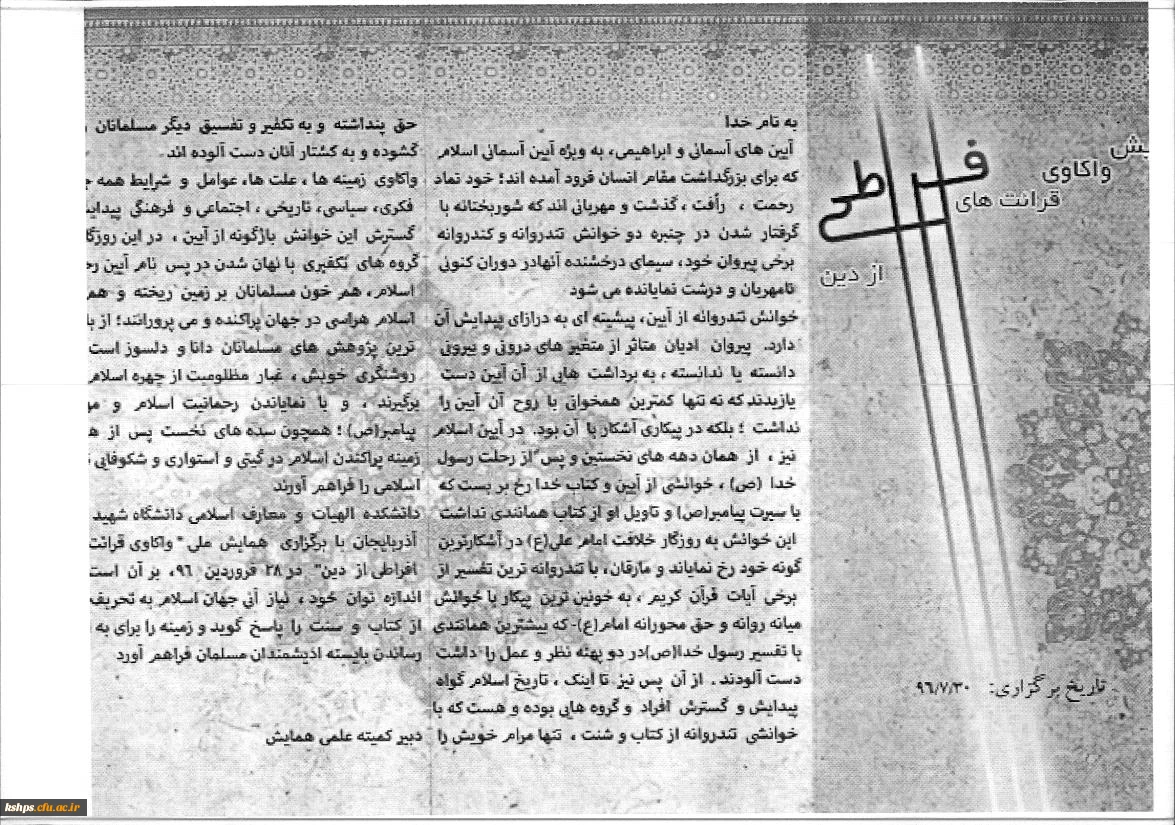 واکاوی
قرائت های
افراطی
از دین
تاریخ برگزاری: ۹۶/۷/۳۰
به نام خدا
آیین های آسمانی و ابراهیمی، به ویژه آیین آسمانی اسلام
که برای بزرگداشت مقام انسان فرود آمده اند؛ خود نماد
رحمت ، رأفت ، گذشت و مهربانی اند که شوربختانه با
گرفتار شدن در چنبره دو خوانش تندروانه و کندروانه
برخی پیروان خود، سیمای درخشنده آنهادر دوران کنونی
نامهربان و درشت نمایانده می شود
خوانش تندروانه از آیین، پیشینه ای به درازای پیدایش آن
دارد. پیروان ادیان متاثر از متغیر های درونی و بیرونی
دانسته یا ندانسته ، به برداشت هایی از آن آیین دست
یازیدند که نه تنها کمترین همخوانی با روح آن آیین را
نداشت ؛ بلکه در پیکاری آشکار با آن بود. در آیین اسلام
نیز ، از همان دهه های نخستین و پس از رحلت رسول
خدا (ص) ، خوانشی از آیین و کتاب خدا رخ بر بست که
با سیرت پیامبر(ص) و تاویل او از کتاب همانندی نداشت
این خوانش به روزگار خلافت امام علی(ع) در آشکارترین
گونه خود رخ نمایاند و مارقان، با تندروانه ترین تفسیر از
برخی آیات قرآن کریم ، به خونین ترین پیکار با خوانش
میانه روانه و حق محورانه امام(ع)- که بیشترین همانندی
با تفسیر رسول خدا(ص)در دو پهنه نظر و عمل را داشت
دست آلودند . از آن پس نیز تا اینک ، تاریخ اسلام گواه
پیدایش و گسترش افراد و گروه هایی بوده و هست که با
خوانشی تندروانه از کتاب و سنت ، تنها مرام خویش را
حق پنداشته و به تکفیر و تفسیق دیگر مسلمانان
گشوده و به کشتار آنان دست آلوده اند.
واکاوی زمینه ها ، علت ها، عوامل و شرایط همه
فکری، سیاسی، تاریخی ، اجتماعی و فرهنگی
گسترش این خوانش باژگونه از آیین ، در این
گروه های تکفیری با نهان شدن در پس نام آیین
اسلام، هم خون مسلمانان بر زمین ریخته و
اسلام هراسی در جهان پراکنده و می پرورانند؛ از
ترین پژوهش های مسلمانان دانا و دلسوز است
روشنگری خویش ، غبار مظلومیت از چهره اسلام
برگیرند ، و با نمایاندن رحمانیت اسلام و
پیامبر(ص) ؛ همچون سده های نخست پس از
زمینه پراکندن اسلام در گیتی و استواری و شکوفایی
اسلامی را فراهم آورند
دانشکده الهیات و معارف اسلامی دانشگاه شهید
آذربایجان با برگزاری همایش ملی " واکاوی قرائت
افراطی از دین" در ۲۸ فروردین ۹۶، بر آن است
اندازه توان خود ، نیاز آنی جهان اسلام به تحریف
از کتاب و سنت را پاسخ گوید و زمینه را برای به
رساندن بایسته اندیشمندان مسلمان فراهم آورد
دبیر کمیته علمی همایش
kshps.cfu.ac.ir